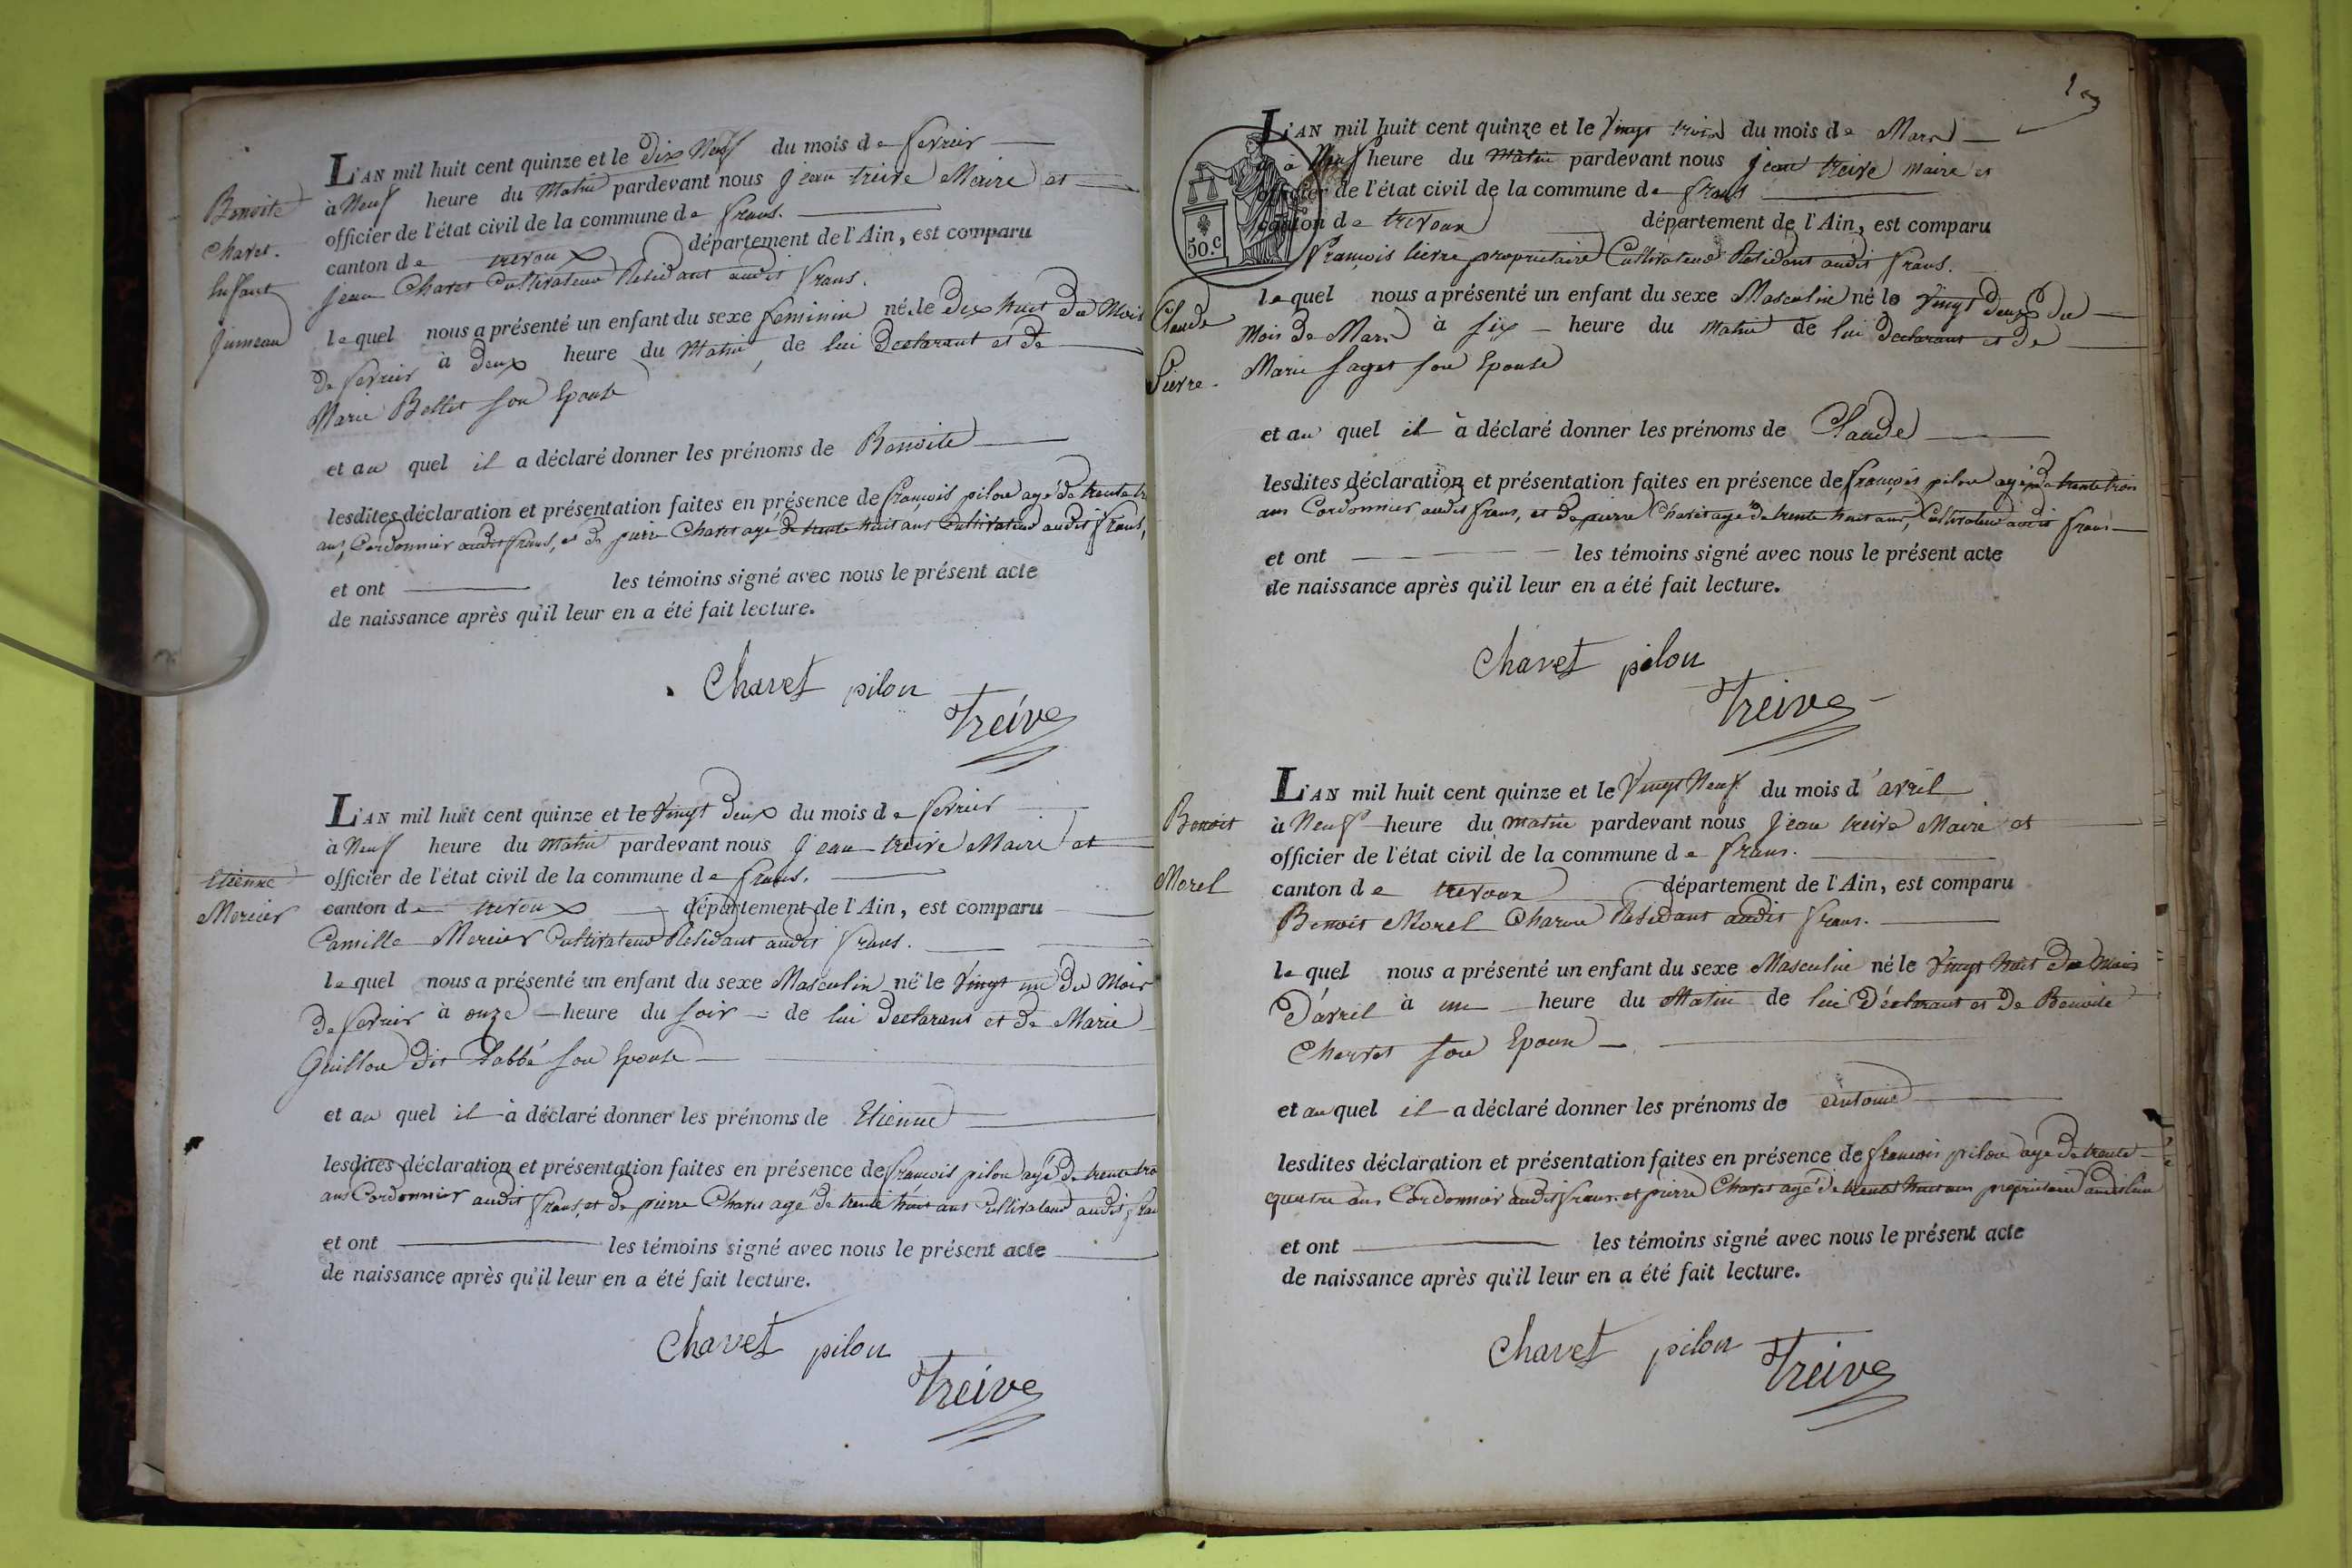 Benoite
Chavet.
Enfant
Jumeau
L'AN mil huit cent quinze et le dix Neuf du mois de fevrier
à Neuf heure du Matin pardevant nous Jean treive Maire et
officier de l'état civil de la commune de frans.
canton de trevoux département de l'Ain, est comparu
Jean Chavet Cultivateur Residant audit frans.
lequel nous a présenté un enfant du sexe feminin né le dix huit du Mois
de fevrier à deux heure du Matin, de lui declarant et de
Marie Bellet son Epouse
et au quel il a déclaré donner les prénoms de Benoite
lesdites déclaration et présentation faites en présence de françois pilon agé de trente
ans, Cordonnier audit frans, et de pierre Chavet agé de trente huit ans Cultivateur audit frans,
et ont les témoins signé avec nous le présent acte
de naissance après qu'il leur en a été fait lecture.
Chavet pilon
Treive
Etienne
Mercier
L'AN mil huit cent quinze et le vingt deux du mois de fevrier
à Neuf heure du Matin pardevant nous Jean treive Maire et
officier de l'état civil de la commune de frans.
canton de trevoux département de l'Ain, est comparu
Camille Mercier Cultivateur Residant audit frans.
lequel nous a présenté un enfant du sexe Masculin né le vingt un du Mois
de fevrier à onze heure du soir de lui declarant et de Marie
Guillon dit Labbé son Epouse
et au quel il à déclaré donner les prénoms de Etienne
lesdites déclaration et présentation faites en présence de françois pilon agé de trente tro
ans Cordonnier audit frans, et de pierre Chavet agé de trente huit ans Cultivateur audit fran
et ont les témoins signé avec nous le présent acte
de naissance après qu'il leur en a été fait lecture.
Chavet pilon
Treive
50.c
Claude
Lievre.
L'AN mil huit cent quinze et le vingt trois du mois de Mars
à Neuf heure du Matin pardevant nous Jean treive maire et
officier de l'état civil de la commune de frans
canton de trevoux département de l'Ain, est comparu
François lievre proprietaire Cultivateur Residant audit frans.
lequel nous a présenté un enfant du sexe Masculin né le vingt deux du
Mois de Mars à six heure du Matin de lui declarant et de
Marie sont Epouse
et au quel il à déclaré donner les prénoms de Claude
lesdites déclaration et présentation faites en présence de françois pilon agé de trente trois
ans Cordonnier audit frans, et de pierre Chavet agé de trente huit ans, Cultivateur audit frans
et ont les témoins signé avec nous le présent acte
de naissance après qu'il leur en a été fait lecture.
Chavet pilon
Treive
Benoit
Morel
L'AN mil huit cent quinze et le vingt Neuf du mois d'avril
à Neuf heure du matin pardevant nous Jean treive Maire et
officier de l'état civil de la commune de frans.
canton de trevoux département de l'Ain, est comparu
Benoit Morel Charon Residant audit frans.
lequel nous a présenté un enfant du sexe Masculin né le vingt huit du Mois
D'avril à une heure du Matin de lui Déclarant et de Benoite
son Epouse
et au quel il a déclaré donner les prénoms de antoine
lesdites déclaration et présentation faites en présence de francois pilon agé de trente
quatre ans Cordonnier audit frans. et pierre Chavet agé de trente huit ans proprietaire audit lieu
et ont les témoins signé avec nous le présent acte
de naissance après qu'il leur en a été fait lecture.
Chavet pilon
Treive